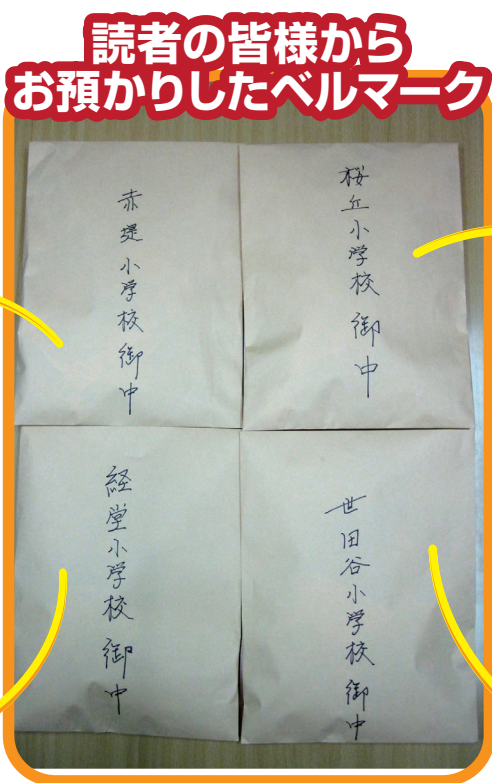 読者の皆様から
お預かりしたベルマーク
赤堤小学校御中
桜丘小学校御中
経堂小学校御中
世田谷小学校御中